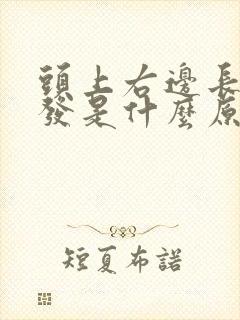 頭上右邊長
發是什麼原
短夏布諾